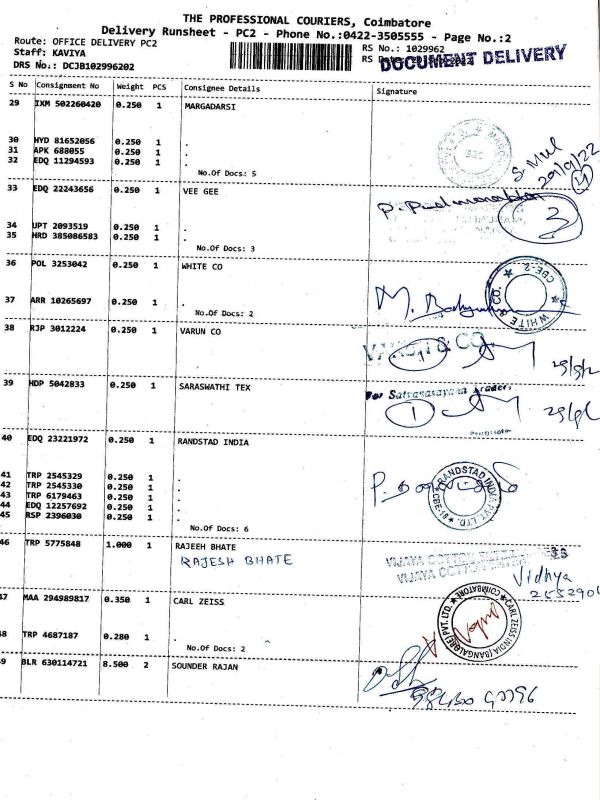 THE PROFESSIONAL COURIERS, Coimbatore
Delivery Runsheet - PC2 - Phone No.:0422-3505555 - Page No.:2
Route: OFFICE DELIVERY PC2
Staff: KAVIYA
DRS No.: DCJB102996202
RS No.: 1029962
RS
DOCUMENT DELIVERY
S No Consignment No Weight PCS Consignee Details Signature
29 IXM 502260420 0.250 1 MARGADARSI
30 HYD 81652056 0.250 1 .
31 APK 688055 0.250 1 .
32 EDQ 11294593 0.250 1 .
No.Of Docs: 5
29/9/22
4
33 EDQ 22243656 0.250 1 VEE GEE
34 UPT 2093519 0.250 1 .
35 HRD 385086583 0.250 1 .
No.Of Docs: 3
3
36 POL 3253042 0.250 1 WHITE CO
37 ARR 10265697 0.250 1 .
No.Of Docs: 2
WHITE CO. ★ CBE-2 ★
38 RJP 3012224 0.250 1 VARUN CO
VARUN & CO.
1
39 HDP 5042833 0.250 1 SARASWATHI TEX
For Satyanarayana Traders
1
40 EDQ 23221972 0.250 1 RANDSTAD INDIA
41 TRP 2545329 0.250 1 .
42 TRP 2545330 0.250 1 .
43 TRP 6179463 0.250 1 .
44 EDQ 12257692 0.250 1 .
45 RSP 2396030 0.250 1 .
No.Of Docs: 6
RANDSTAD INDIA PVT. LTD. ★ CBE-18 ★
46 TRP 5775848 1.000 1 RAJEEH BHATE
RAJESH BHATE
VIJAYA COTTON
VIJAYA COTTON
Vidhya
47 MAA 294989817 0.350 1 CARL ZEISS
48 TRP 4687187 0.280 1 .
No.Of Docs: 2
CARL ZEISS INDIA (BANGALORE) PVT. LTD. ★ COIMBATORE ★
49 BLR 630114721 8.500 2 SOUNDER RAJAN